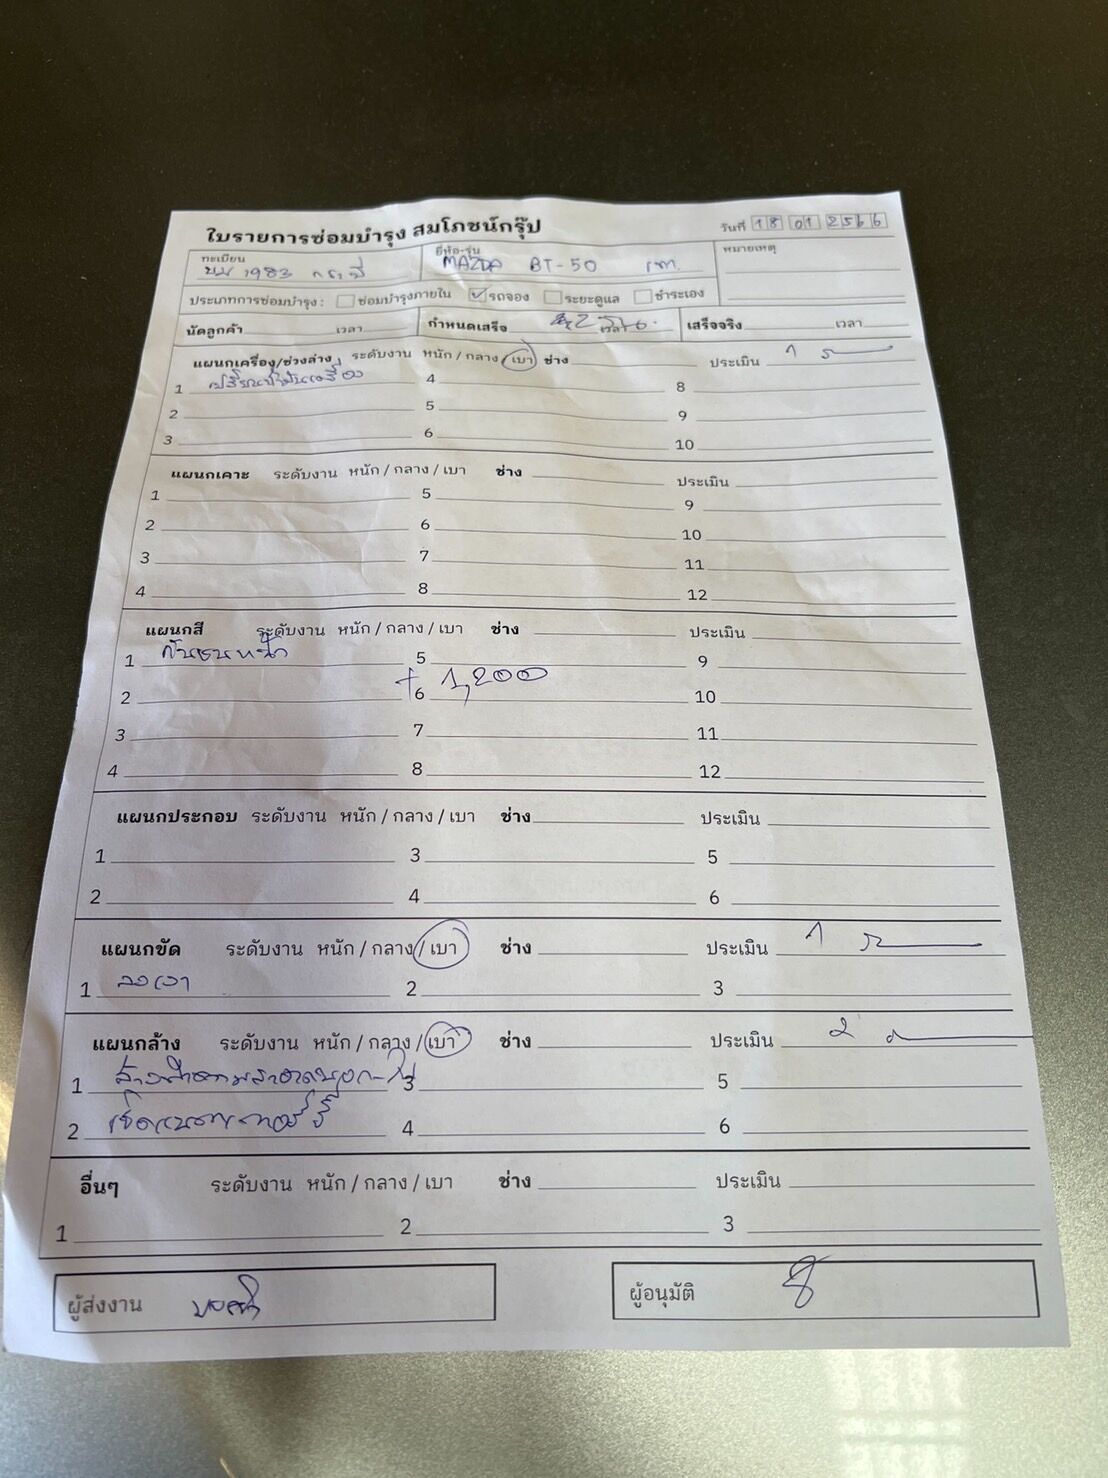 ใบรายการซ่อมบำรุง สมโภชน์กรุ๊ป
วันที่ 18 01 2566
ทะเบียน
ยี่ห้อ-รุ่น
หมายเหตุ
1983 กระบี่
MAZDA BT-50
ประเภทการซ่อมบำรุง : ซ่อมบำรุงภายใน รถจอง ระยะดูแล ชำระเอง
นัดลูกค้า เวลา กำหนดเสร็จ เวลา เสร็จจริง เวลา
แผนกเครื่อง/ช่วงล่าง ระดับงาน หนัก / กลาง / เบา ช่าง ประเมิน 1
1 เปลี่ยนน้ำมันเครื่อง 4 8
2 5 9
3 6 10
แผนกเคาะ ระดับงาน หนัก / กลาง / เบา ช่าง ประเมิน
1 5 9
2 6 10
3 7 11
4 8 12
แผนกสี ระดับงาน หนัก / กลาง / เบา ช่าง ประเมิน
1 กันชนหน้า 5 9
2 6 + 1,200 10
3 7 11
4 8 12
แผนกประกอบ ระดับงาน หนัก / กลาง / เบา ช่าง ประเมิน
1 3 5
2 4 6
แผนกขัด ระดับงาน หนัก / กลาง / เบา ช่าง ประเมิน 1
1 ลงเงา 2 3
แผนกล้าง ระดับงาน หนัก / กลาง / เบา ช่าง ประเมิน 2
1 ล้างทำความสะอาดนอก-ใน 3 5
2 4 6
อื่นๆ ระดับงาน หนัก / กลาง / เบา ช่าง ประเมิน
1 2 3
ผู้ส่งงาน
ผู้อนุมัติ